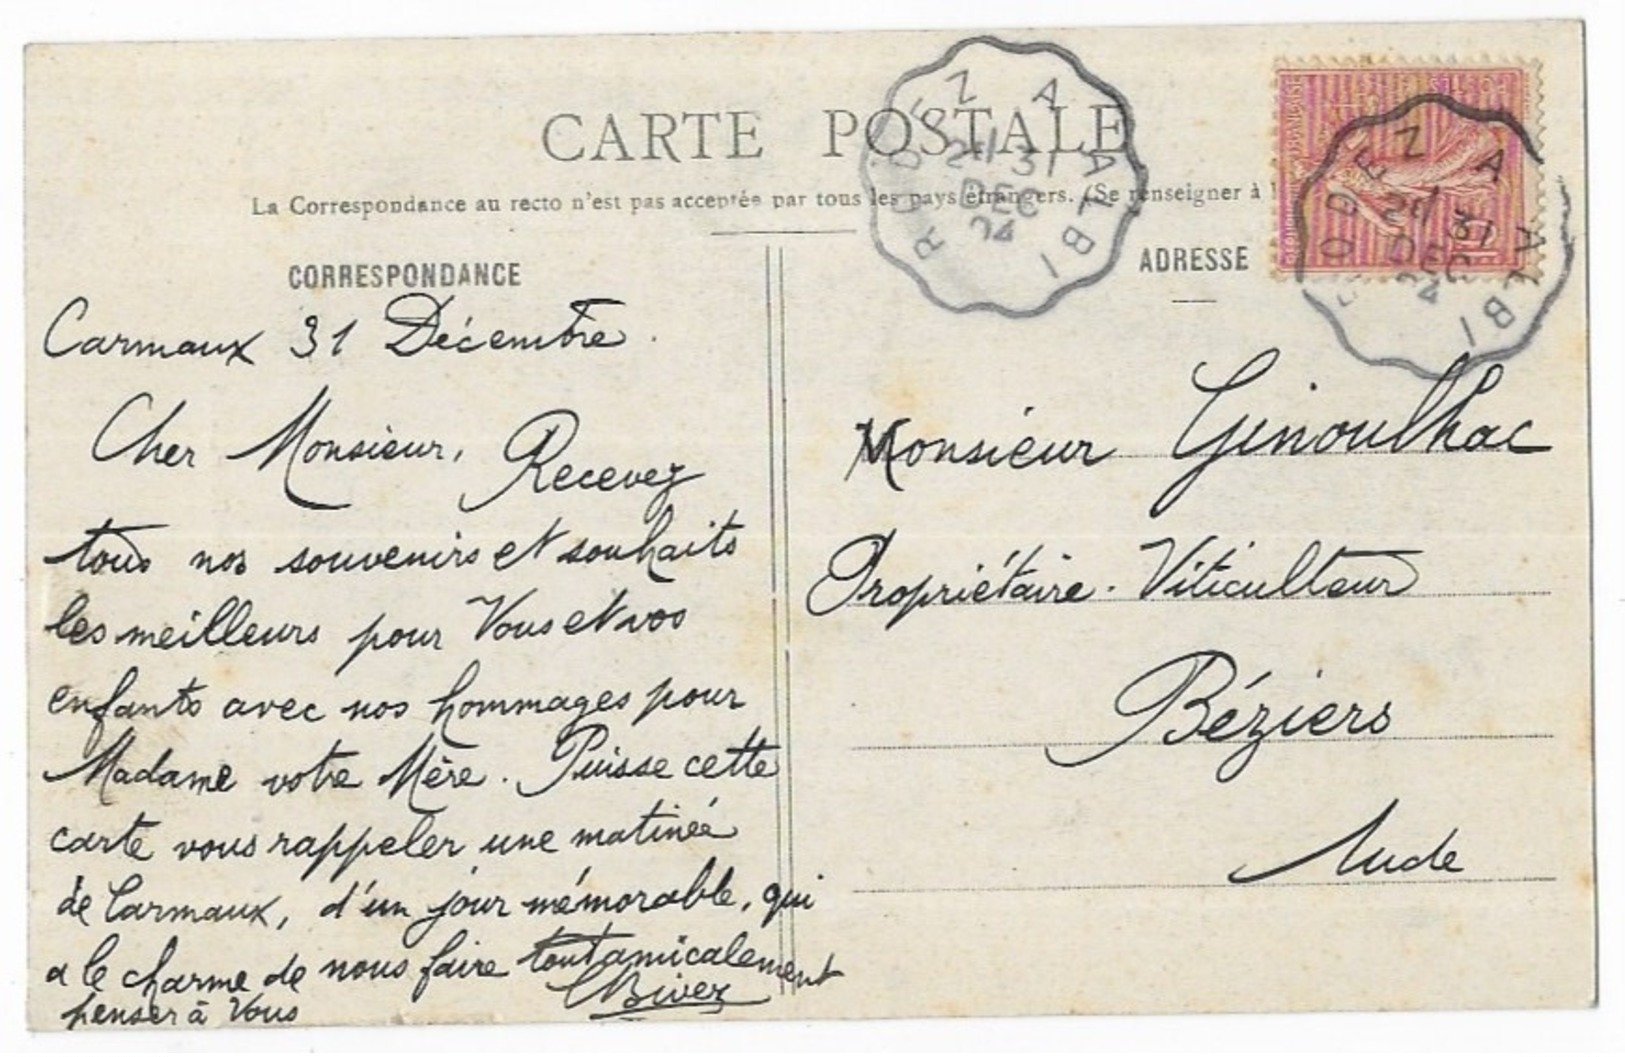 CARTE POSTALE
La Correspondance au recto n'est pas acceptée par tous les pays étrangers. (Se renseigner à
CORRESPONDANCE
Carmaux 31 Décembre.
Cher Monsieur, Recevez
tous nos souvenirs et souhaits
les meilleurs pour Vous et vos
enfants avec nos hommages pour
Madame votre Mère. Puisse cette
carte vous rappeler une matinée
de Carmaux, d'un jour mémorable, qui
a le charme de nous faire tout amicalement
penser à Vous
CBivez
ADRESSE
Monsieur Ginoulhac
Propriétaire. Viticulteur
Béziers
Aude
RODEZ A ALBI
2° 31
DEC
04
RODEZ A ALBI
2° 31
DEC
04